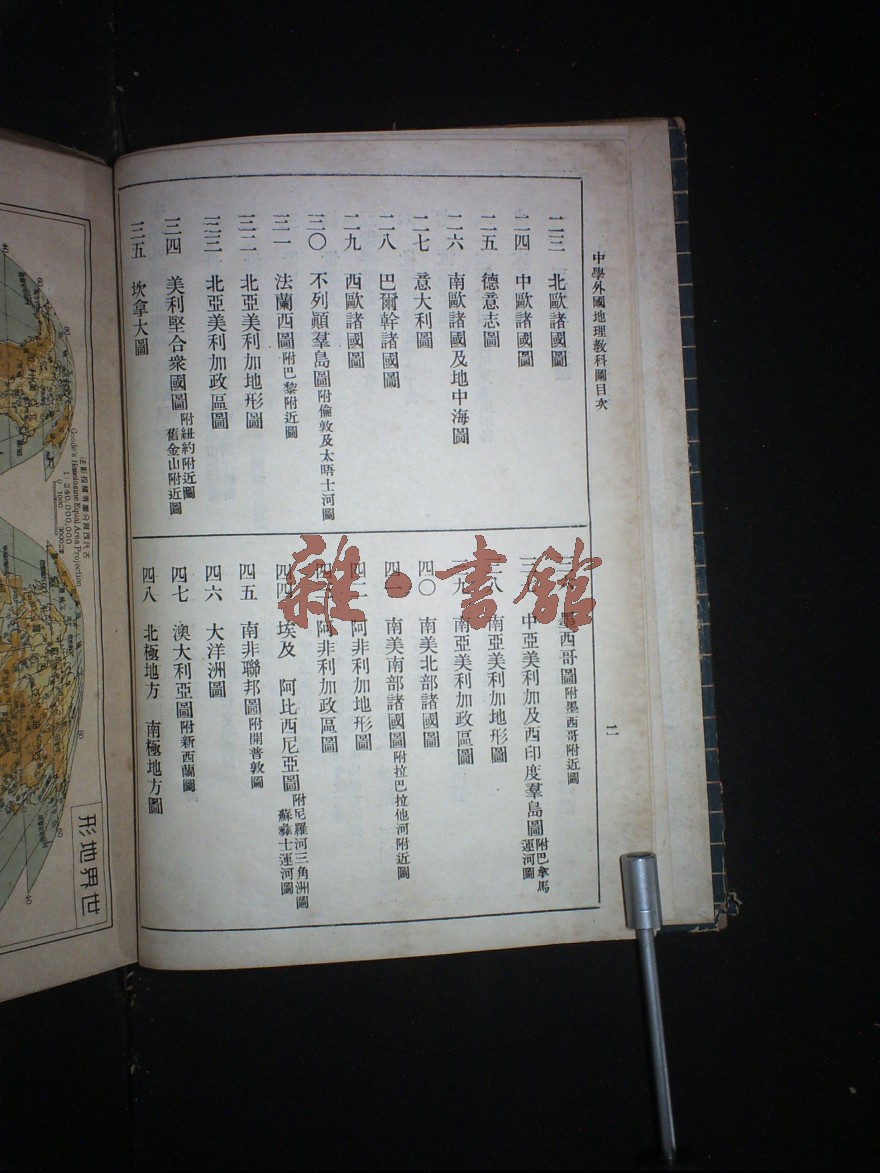 中學外國地理教科圖目次
二
二三 北歐諸國圖
二四 中歐諸國圖
二五 德意志圖
二六 南歐諸國及地中海圖
二七 意大利圖
二八 巴爾幹諸國圖
二九 西歐諸國圖
三〇 不列顛羣島圖附倫敦及太晤士河圖
三一 法蘭西圖附巴黎附近圖
三二 北亞美利加地形圖
三三 北亞美利加政區圖
三四 美利堅合衆國圖附紐約附近圖舊金山附近圖
三五 坎拿大圖
墨西哥圖附墨西哥附近圖
中亞美利加及西印度羣島圖附巴拿馬運河圖
南亞美利加地形圖
南亞美利加政區圖
四〇 南美北部諸國圖
四一 南美南部諸國圖附拉巴拉他河附近圖
阿非利加地形圖
阿非利加政區圖
四四 埃及 阿比西尼亞圖附尼羅河三角洲圖蘇彝士運河圖
四五 南非聯邦圖附開普敦圖
四六 大洋洲圖
四七 澳大利亞圖附新西蘭圖
四八 北極地方 南極地方圖
雜·書館
世界地形
Goode's Homolosine Equal Area Projection
1:240,000,000